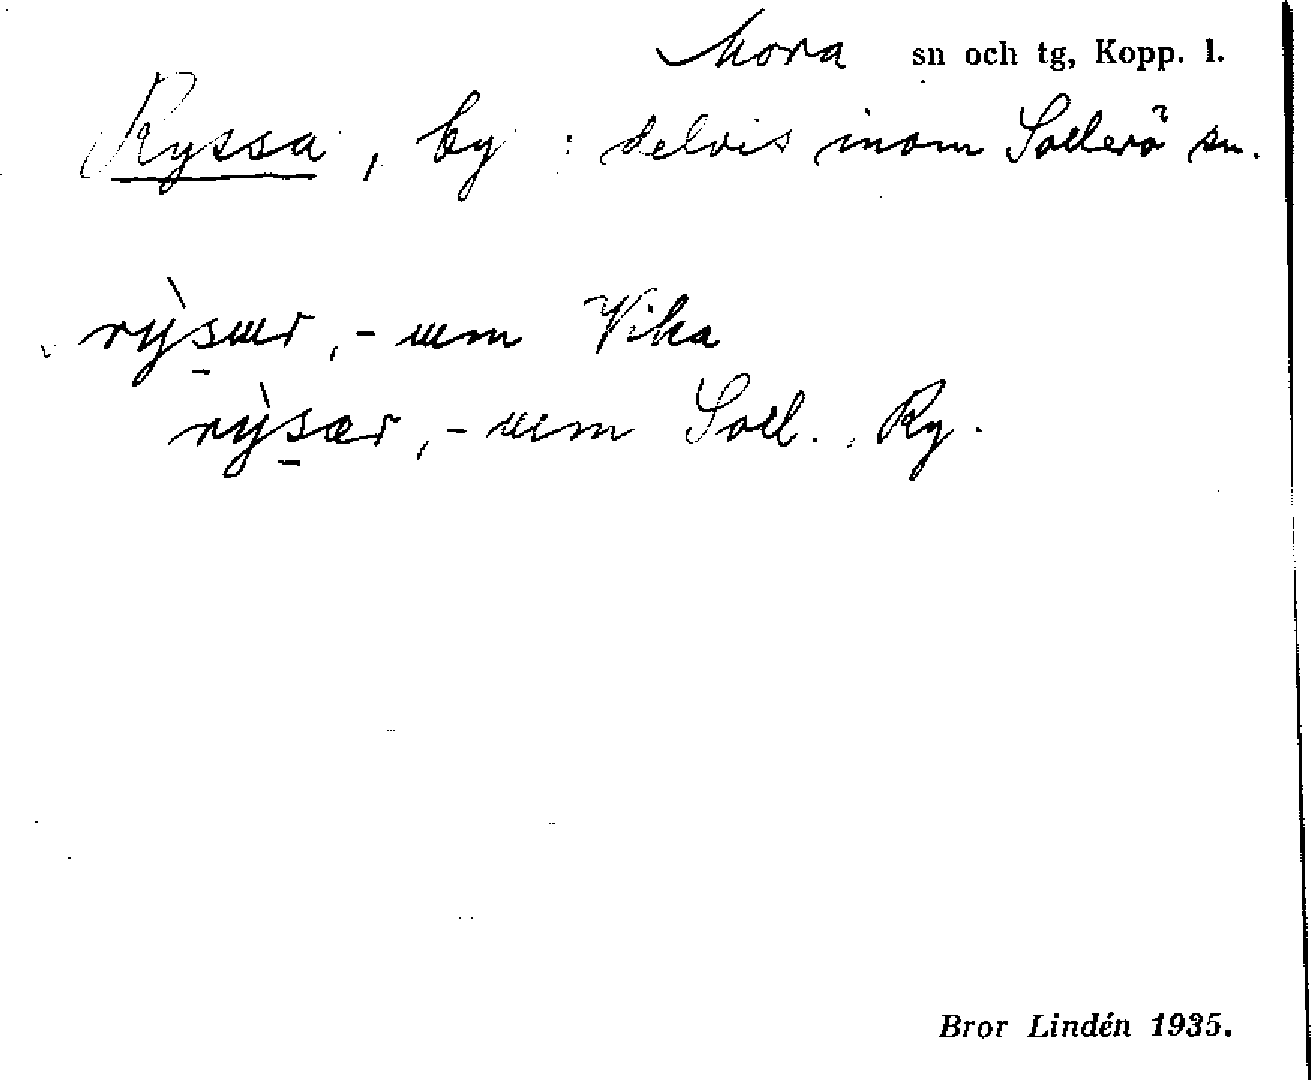 Mora sn och tg, Kopp. l.
Ryssa, by : delvis inom Sollerö sn.
rỳsær, -um Vika
rỳsær, -um Soll. , Ry.
Bror Lindén 1935.